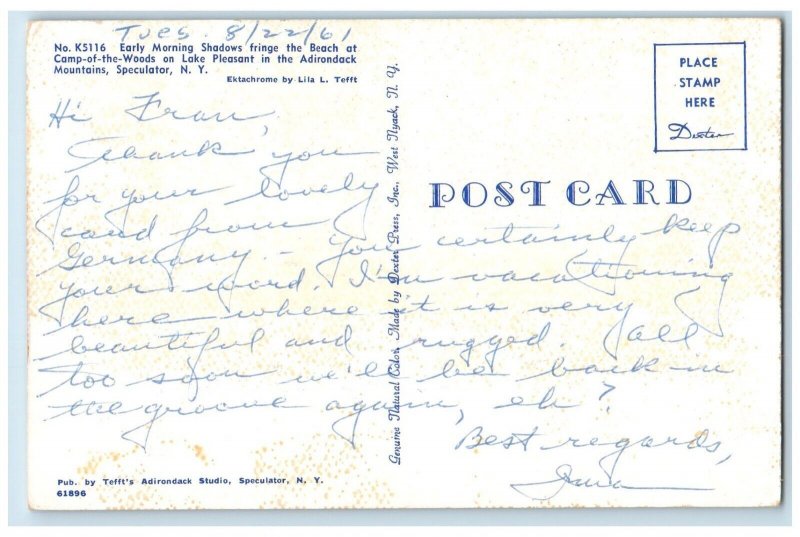 Tues. 8/22/61
No. K5116 Early Morning Shadows fringe the Beach at
Camp-of-the-Woods on Lake Pleasant in the Adirondack
Mountains, Speculator, N. Y.
Ektachrome by Lila L. Tefft
PLACE
STAMP
HERE
Dexter
POST CARD
Genuine Natural Color, Made by Dexter Press, Inc., West Nyack, N. Y.
Hi Fran,
Thank you
for your lovely
card from
Germany. - You certainly keep
your word. I'm vacationing
here where it is very
beautiful and rugged. All
too soon we'll be back in
the groove again, eh?
Best regards,
Pub. by Tefft's Adirondack Studio, Speculator, N. Y.
61896